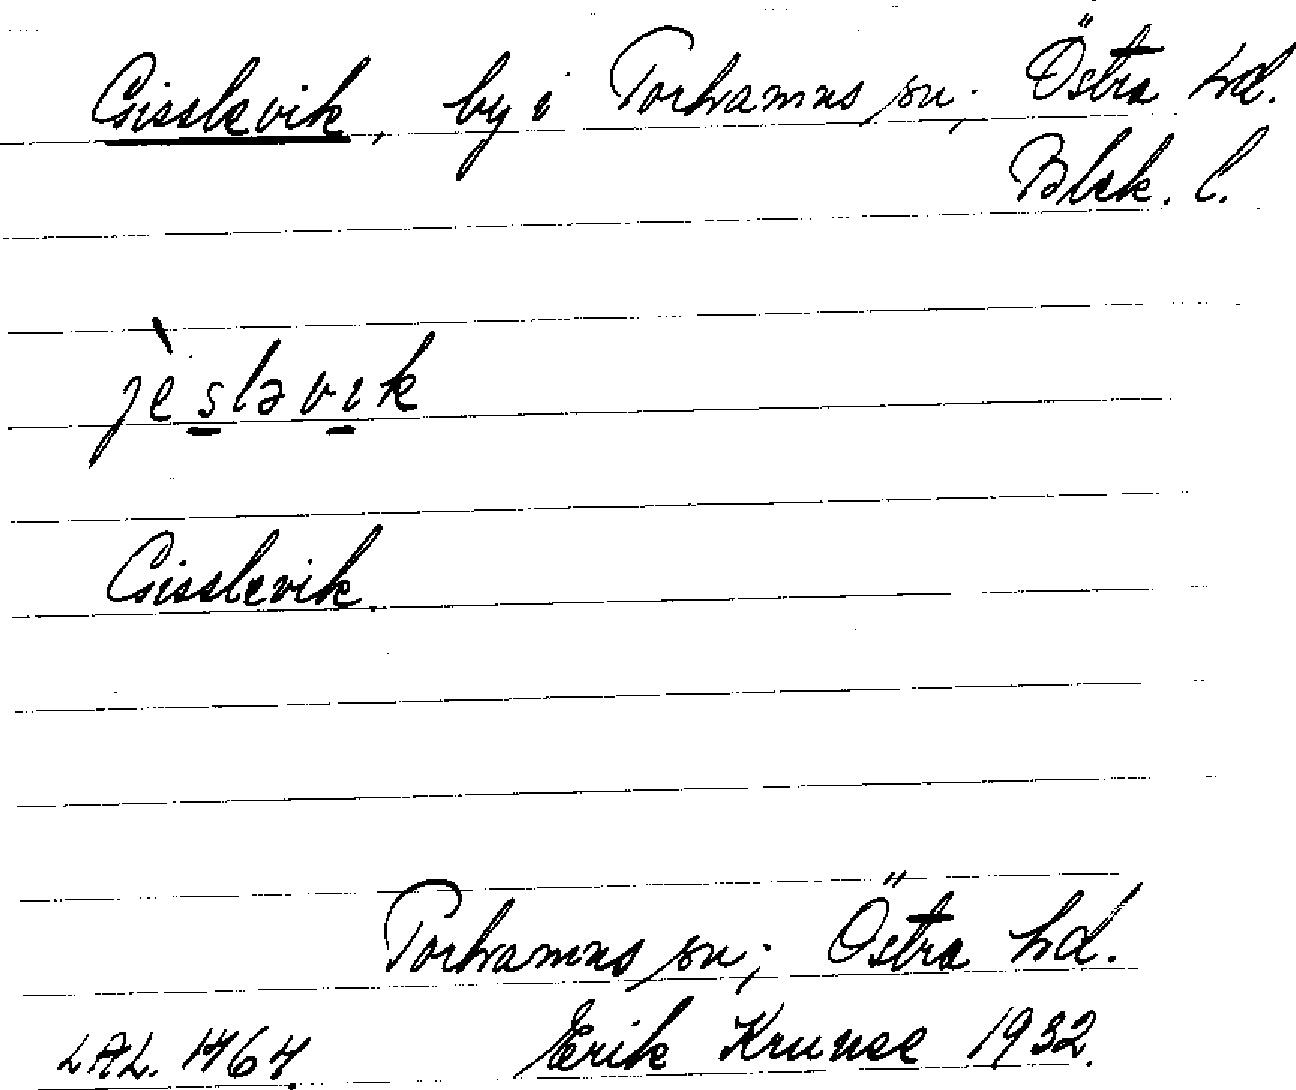 Gisslevik, by i Torhamns sn; Östra hd.
Blek. l.
jèslǝvik
Gisslevik
Torhamns sn; Östra hd.
LAL. 1464. Erik Kruuse 1932.